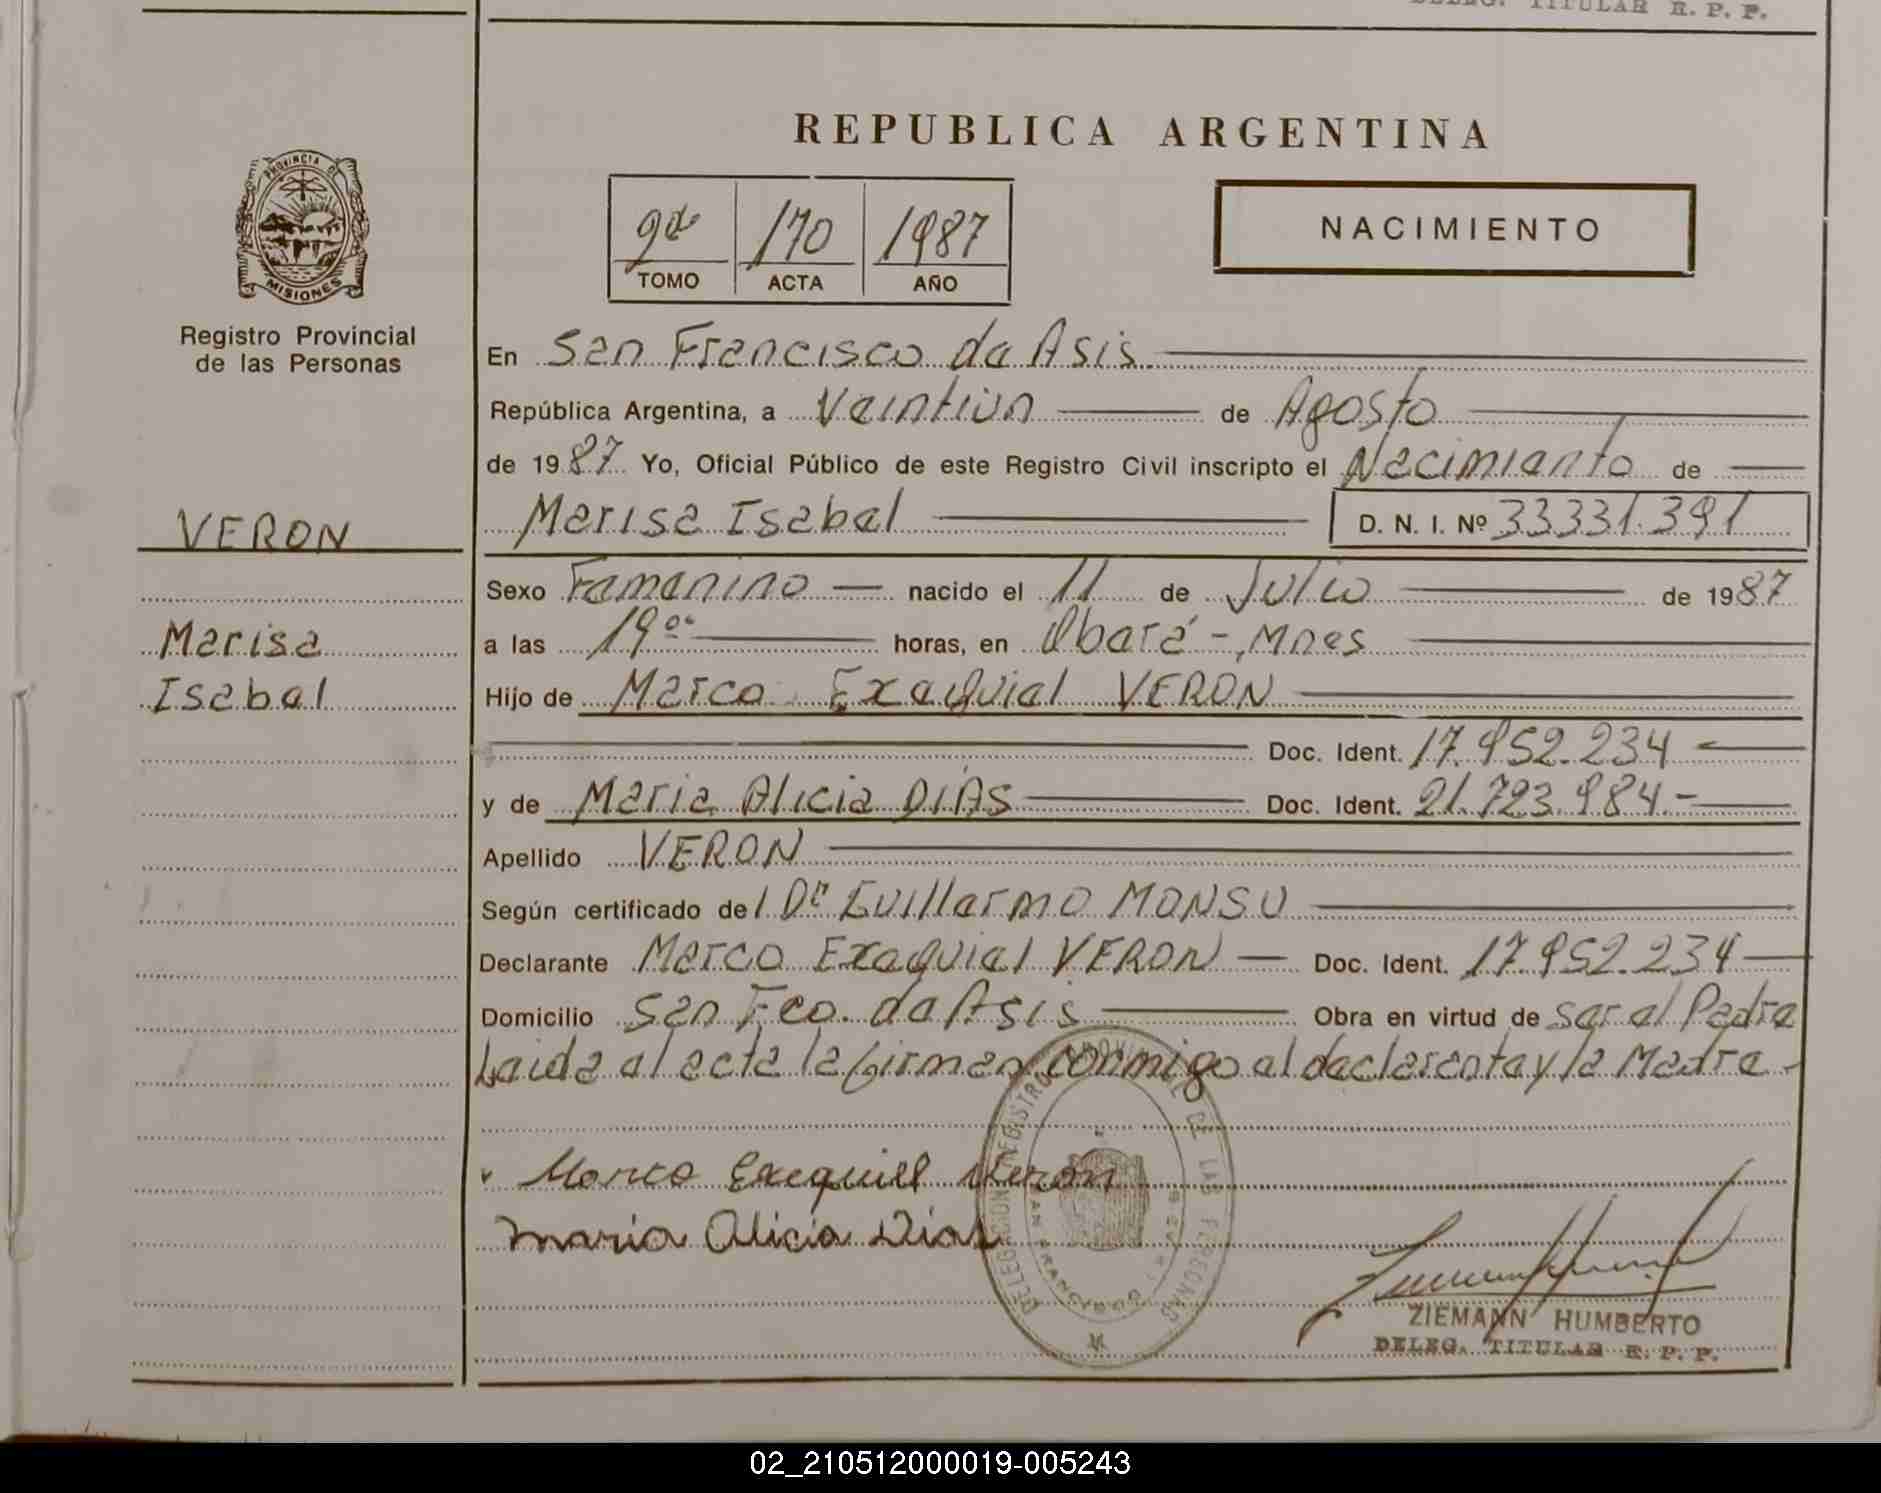 DELEG. TITULAR R. P. P.
REPUBLICA ARGENTINA
PROVINCIA DE
MISIONES
Registro Provincial
de las Personas
2do 170 1987
TOMO ACTA AÑO
NACIMIENTO
En San Francisco de Asis
República Argentina, a Veintiun de Agosto
de 1987 Yo, Oficial Público de este Registro Civil inscripto el Nacimiento de
VERON
Marisa Isabel D. N. I. Nº 33331.391
Sexo Femenino nacido el 11 de Julio de 1987
Marisa
a las 19 00 horas, en Oberá -, Mnes
Isabel
Hijo de Marco Exequiel VERON
Doc. Ident. 17.952.234
y de Maria Alicia DIAS Doc. Ident. 21.723.984.-
Apellido VERON
Según certificado del Dr Guillermo MONSU
Declarante Marco Exequiel VERON Doc. Ident. 17.952.234
Domicilio San Fco. de Asis Obra en virtud de ser el Padre
Leida el acta la firman conmigo el declarante y la Madre -
Marco Exequiel Veron
maria Alicia Dias
DELEGACION REGISTRO PROVINCIAL DE LAS PERSONAS
SAN FRANCISCO DE ASIS
ZIEMANN HUMBERTO
DELEG. TITULAR R. P. P.
02_210512000019-005243